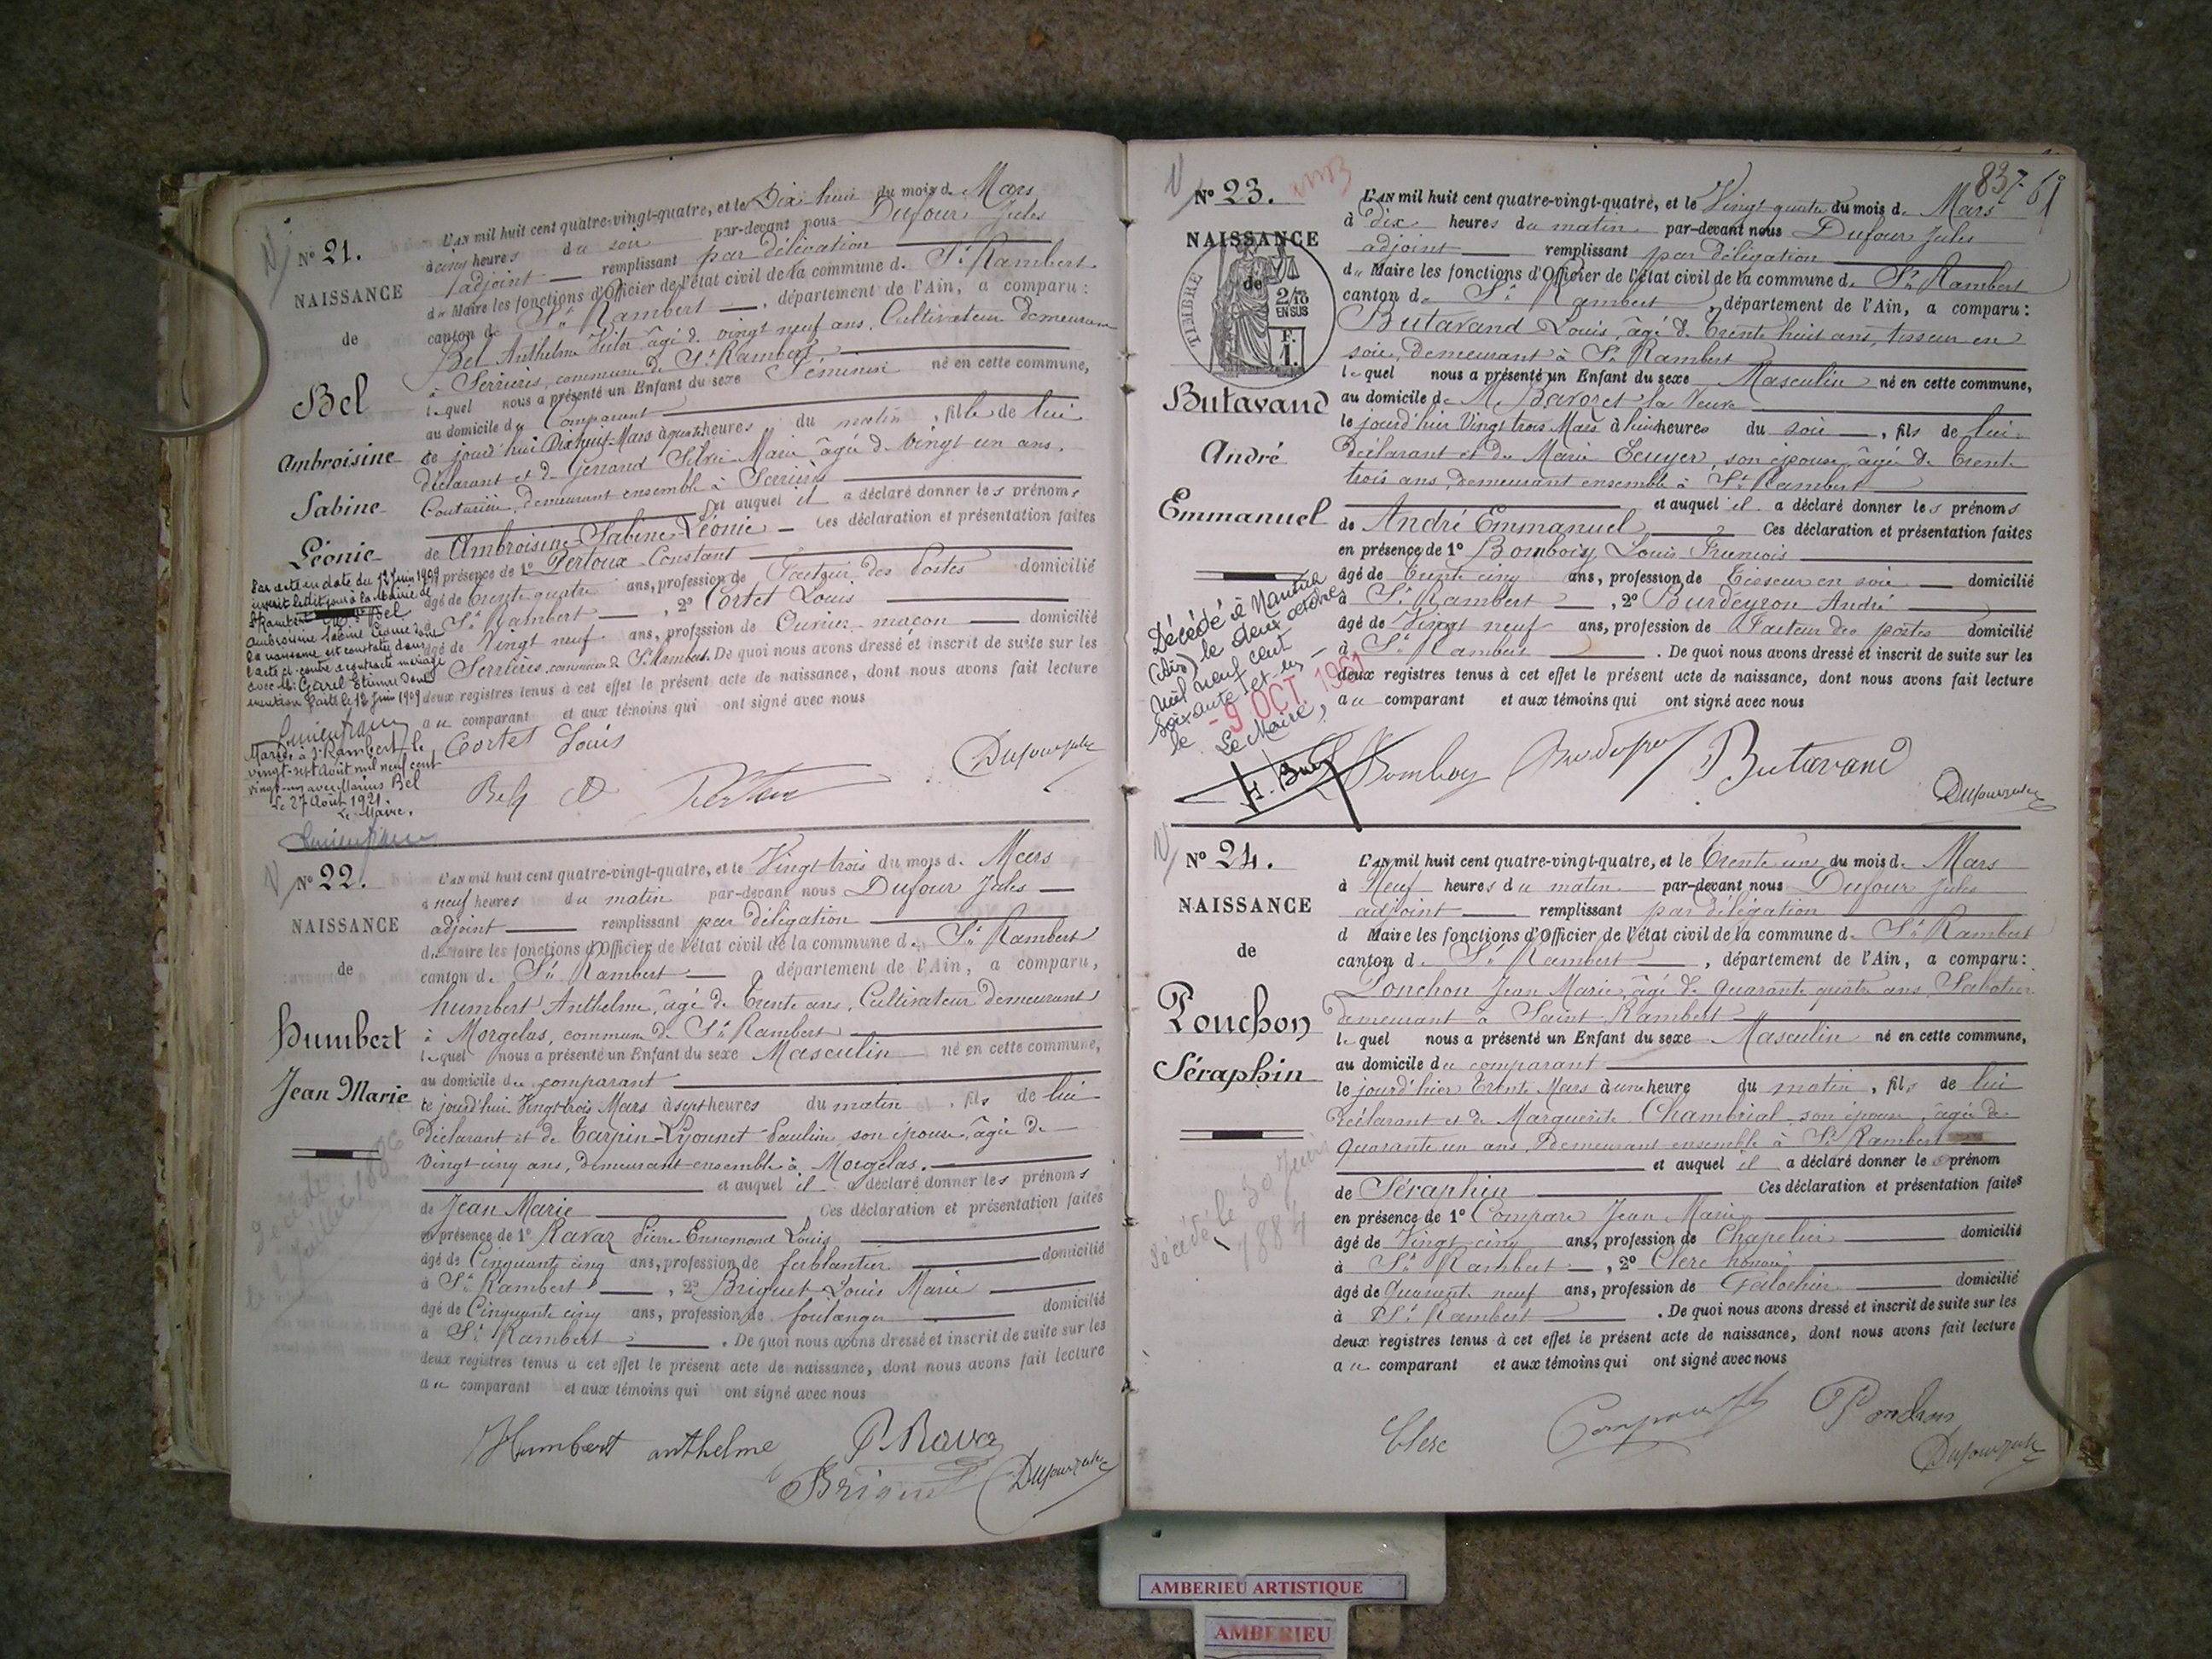 N° 21.
NAISSANCE
de
Bel
Ambroisine
Sabine
Léonie
Par acte en date du 12 Juin 1909
inscrit ledit jour à la Mairie de
St Rambert Bel
Ambroisine Sabine Léonie dont
la naissance est constatée dans
l'acte ci-contre a contracté mariage
avec M. Garel Etienne dont
mention faite le 12 Juin 1909
Marié à St Rambert le
vingt-sept Août mil neuf cent
vingt-un avec Marius Bel
Le 27 Août 1921
Le Maire,
L'AN mil huit cent quatre-vingt-quatre, et le Dix huit du mois de Mars
à cinq heures du soir par-devant nous Dufour Jules
adjoint remplissant par délégation
du Maire les fonctions d'Officier de l'état civil de la commune de St Rambert
canton de St Rambert, département de l'Ain, a comparu:
Bel Anthelme Victor âgé de vingt neuf ans, Cultivateur demeurant
à Serrières, commune de St Rambert,
lequel nous a présenté un Enfant du sexe Féminin né en cette commune,
au domicile du Comparant
ce jourd'hui Dix huit Mars à quatre heures du matin, fille de lui
déclarant et de Silvie Marie âgée de vingt un ans,
Couturière, demeurant ensemble à Serrières
et auquel il a déclaré donner les prénoms
de Ambroisine Sabine Léonie — Ces déclaration et présentation faites
en présence de 1° Pertoux Constant
âgé de trente quatre ans, profession de Facteur des Postes domicilié
à St Rambert, 2° Cortet Louis
âgé de Vingt neuf ans, profession de Ouvrier maçon domicilié
à Serrières commune de St Rambert. De quoi nous avons dressé et inscrit de suite sur les
deux registres tenus à cet effet le présent acte de naissance, dont nous avons fait lecture
au comparant et aux témoins qui ont signé avec nous
Cortet Louis
Dufour Jules
Bel
N° 22.
NAISSANCE
de
Humbert
Jean Marie
Décédé
L'AN mil huit cent quatre-vingt-quatre, et le Vingt trois du mois de Mars
à neuf heures du matin par-devant nous Dufour Jules
adjoint remplissant par délégation
du Maire les fonctions d'Officier de l'état civil de la commune de St Rambert
canton de St Rambert département de l'Ain, a comparu,
humbert Anthelme, âgé de trente ans, Cultivateur demeurant
à Morgelas, commune de St Rambert
lequel nous a présenté un Enfant du sexe Masculin né en cette commune,
au domicile du comparant
ce jourd'hui Vingt trois Mars à sept heures du matin, fils de lui
déclarant et de Tarpin-Lyonnet Pauline son épouse, âgée de
vingt-cinq ans, demeurant ensemble à Morgelas.
et auquel il a déclaré donner les prénoms
de Jean Marie Ces déclaration et présentation faites
en présence de 1° Ravaz Pierre Ennemond Louis
âgé de Cinquante cinq ans, profession de ferblantier domicilié
à St Rambert, 2° Briquet Louis Marie
âgé de Cinquante cinq ans, profession de boulanger domicilié
à St Rambert. De quoi nous avons dressé et inscrit de suite sur les
deux registres tenus à cet effet le présent acte de naissance, dont nous avons fait lecture
au comparant et aux témoins qui ont signé avec nous
Humbert anthelme P. Ravaz
Briquet Dufour Jules
837.
N° 23.
NAISSANCE
de
TIMBRE
2/10
EN SUS
F.
1.
Butavand
André
Emmanuel
Décédé à Nantua
(Ain) le deux octobre
mil neuf cent
soixante et un
le -9 OCT. 1961
Le Maire,
L'AN mil huit cent quatre-vingt-quatre, et le Vingt quatre du mois de Mars
à dix heures du matin par-devant nous Dufour Jules
adjoint remplissant par délégation
du Maire les fonctions d'Officier de l'état civil de la commune de St Rambert
canton de St Rambert, département de l'Ain, a comparu:
Butavand Louis, âgé de trente huit ans, tisseur en
soie, demeurant à St Rambert
lequel nous a présenté un Enfant du sexe Masculin né en cette commune,
au domicile de M. la Veuve
le jourd'hier Vingt trois Mars à huit heures du soir, fils de lui
déclarant et de Marie Ecuyer, son épouse, âgée de trente
trois ans, demeurant ensemble à St Rambert
et auquel il a déclaré donner les prénoms
de André Emmanuel Ces déclaration et présentation faites
en présence de 1° Bomboy Louis François
âgé de trente cinq ans, profession de Tisseur en soie domicilié
à St Rambert, 2° Bourdeyron André
âgé de Vingt neuf ans, profession de Facteur des postes domicilié
à St Rambert. De quoi nous avons dressé et inscrit de suite sur les
deux registres tenus à cet effet le présent acte de naissance, dont nous avons fait lecture
au comparant et aux témoins qui ont signé avec nous
Bomboy Butavand
Dufour Jules
N° 24.
NAISSANCE
de
Ponchon
Séraphin
Décédé le 30 Juin
1884
L'AN mil huit cent quatre-vingt-quatre, et le Trente un du mois de Mars
à Neuf heures du matin par-devant nous Dufour Jules
adjoint remplissant par délégation
d Maire les fonctions d'Officier de l'état civil de la commune de St Rambert
canton de St Rambert, département de l'Ain, a comparu:
Ponchon Jean Marie, âgé de quarante quatre ans, Sabotier
demeurant à Saint Rambert
lequel nous a présenté un Enfant du sexe Masculin né en cette commune,
au domicile du comparant
le jourd'hier Trente Mars à une heure du matin, fils de lui
déclarant et de Marguerite Chambrial son épouse, âgée de
quarante un ans, demeurant ensemble à St Rambert
et auquel il a déclaré donner le prénom
de Séraphin Ces déclaration et présentation faites
en présence de 1° Compare Jean Marie
âgé de Vingt cinq ans, profession de Chapelier domicilié
à St Rambert, 2° Clerc honoré
âgé de quarante neuf ans, profession de Galochier domicilié
à St Rambert. De quoi nous avons dressé et inscrit de suite sur les
deux registres tenus à cet effet le présent acte de naissance, dont nous avons fait lecture
au comparant et aux témoins qui ont signé avec nous
Clerc Ponchon
Dufour Jules
AMBERIEU ARTISTIQUE
AMBERIEU